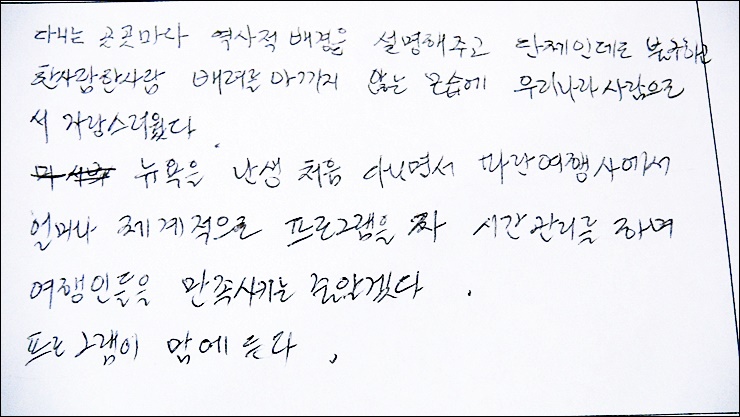 다니는 곳곳마다 역사적 배경을 설명해주고 단체인데도 불구하고
한사람한사람 배려를 아끼지 않는 모습에 우리나라 사람으로
서 자랑스러웠다.
뉴욕을 난생 처음 다니면서 파란여행사에서
얼마나 체계적으로 프로그램을 짜 시간관리를 하며
여행인들을 만족시키는 줄알겠다.
프로그램이 맘에 든다.